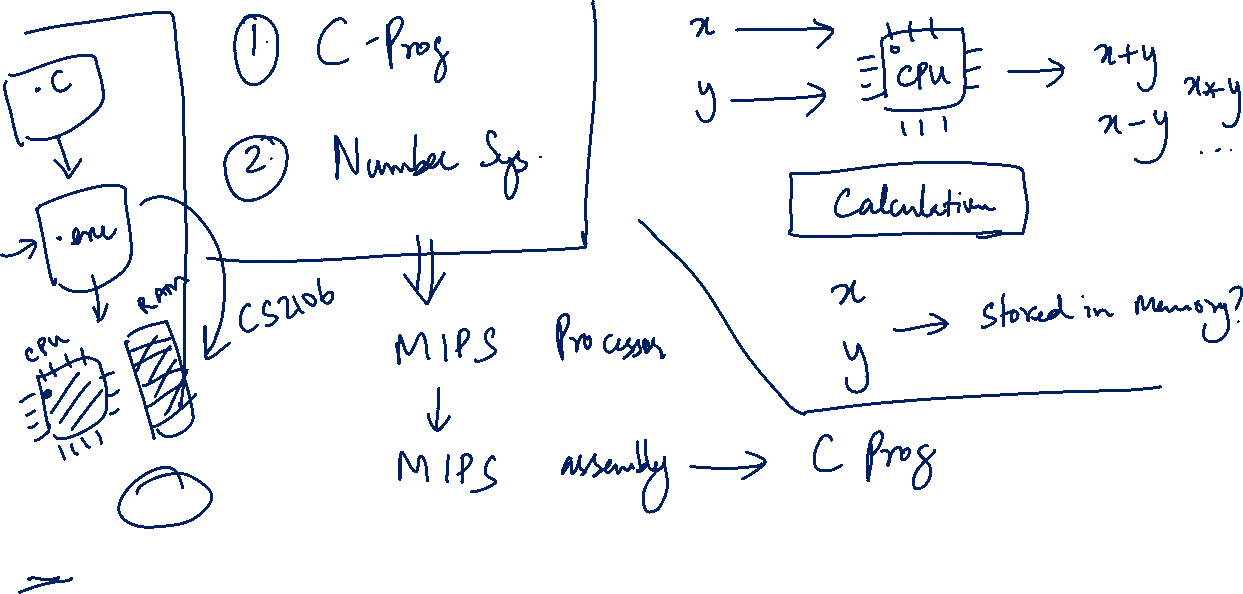 .C
.exe
CPU
RAM
CS2106
1. C-Prog
2. Number Sys.
MIPS Processor
MIPS assembly → C Prog
x
y
CPU
x+y
x-y
x*y
...
Calculation
x
y
→ stored in memory?